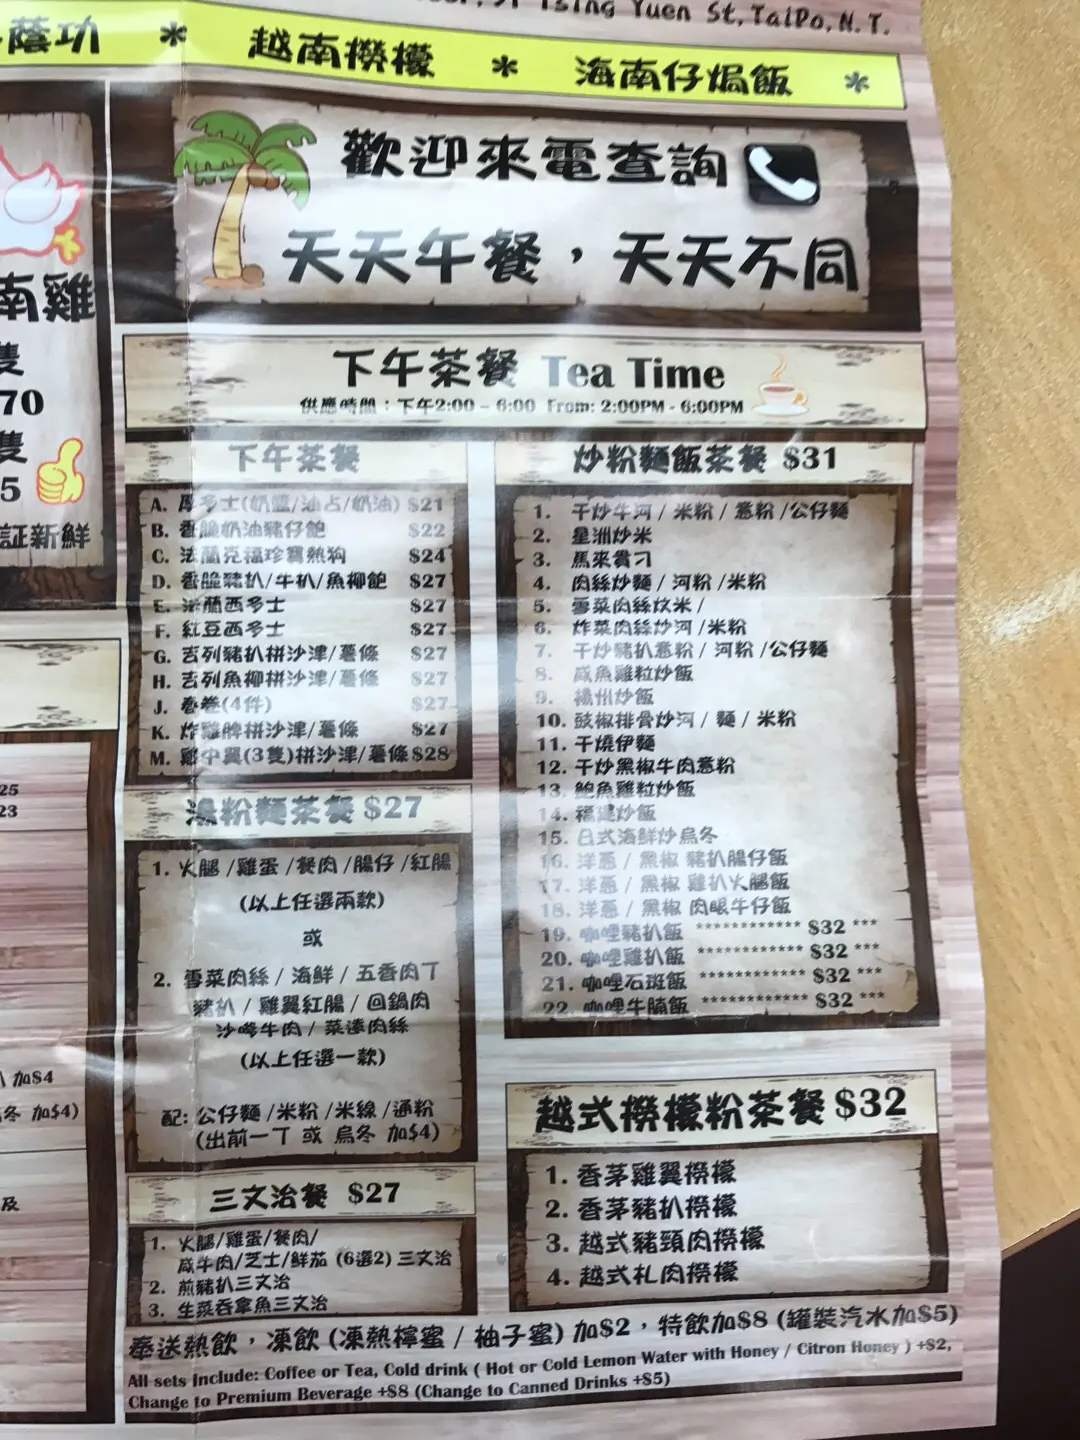 Tsing Yuen St, TaiPo, N.T.
蔭功 * 越南撈檬 * 海南仔焗飯 *
歡迎來電查詢
天天午餐，天天不同
南雞
隻
70
隻
5
証新鮮
下午茶餐 Tea Time
供應時間：下午2:00 - 6:00 From: 2:00PM - 6:00PM
下午茶餐
A. 厚多士(奶醬/油占/奶油) $21
B. 香脆奶油豬仔飽 $22
C. 法蘭克福珍寶熱狗 $24
D. 香脆豬扒/牛扒/魚柳飽 $27
E. 法蘭西多士 $27
F. 紅豆西多士 $27
G. 吉列豬扒拼沙津/薯條 $27
H. 吉列魚柳拼沙津/薯條 $27
J. 春卷(4件) $27
K. 炸雞髀拼沙津/薯條 $27
M. 雞中翼(3隻)拼沙津/薯條 $28
湯粉麵茶餐 $27
1. 火腿 /雞蛋 /餐肉 /腸仔 /紅腸
(以上任選兩款)
或
2. 雪菜肉絲 / 海鮮 / 五香肉丁
豬扒 / 雞翼紅腸 / 回鍋肉
沙嗲牛肉 / 菜遠肉絲
(以上任選一款)
配: 公仔麵 /米粉 /米線 /通粉
(出前一丁 或 烏冬 加$4)
三文治餐 $27
1. 火腿/雞蛋/餐肉/
咸牛肉/芝士/鮮茄 (6選2) 三文治
2. 煎豬扒三文治
3. 生菜吞拿魚三文治
炒粉麵飯茶餐 $31
1. 干炒牛河 / 米粉 / 意粉 /公仔麵
2. 星洲炒米
3. 馬來貴刁
4. 肉絲炒麵 / 河粉 /米粉
5. 雪菜肉絲炆米 /
6. 炸菜肉絲炒河 /米粉
7. 干炒豬扒意粉 / 河粉 /公仔麵
8. 咸魚雞粒炒飯
9. 揚州炒飯
10. 豉椒排骨炒河 / 麵 / 米粉
11. 干燒伊麵
12. 干炒黑椒牛肉意粉
13. 鮑魚雞粒炒飯
14. 福建炒飯
15. 日式海鮮炒烏冬
16. 洋蔥 / 黑椒 豬扒腸仔飯
17. 洋蔥 / 黑椒 雞扒火腿飯
18. 洋蔥 / 黑椒 肉眼牛仔飯
19. 咖哩豬扒飯 ************ $32 ***
20. 咖哩雞扒飯 ************ $32 ***
21. 咖哩石斑飯 ************ $32 ***
22. 咖哩牛腩飯 ************ $32 ***
越式撈檬粉茶餐 $32
1. 香茅雞翼撈檬
2. 香茅豬扒撈檬
3. 越式豬頸肉撈檬
4. 越式札肉撈檬
25
23
加$4
冬 加$4)
及
奉送熱飲，凍飲 (凍熱檸蜜 / 柚子蜜) 加$2，特飲加$8 (罐裝汽水加$5)
All sets Include: Coffee or Tea, Cold drink ( Hot or Cold Lemon Water with Honey / Citron Honey ) +$2,
Change to Premium Beverage +$8 (Change to Canned Drinks +$5)